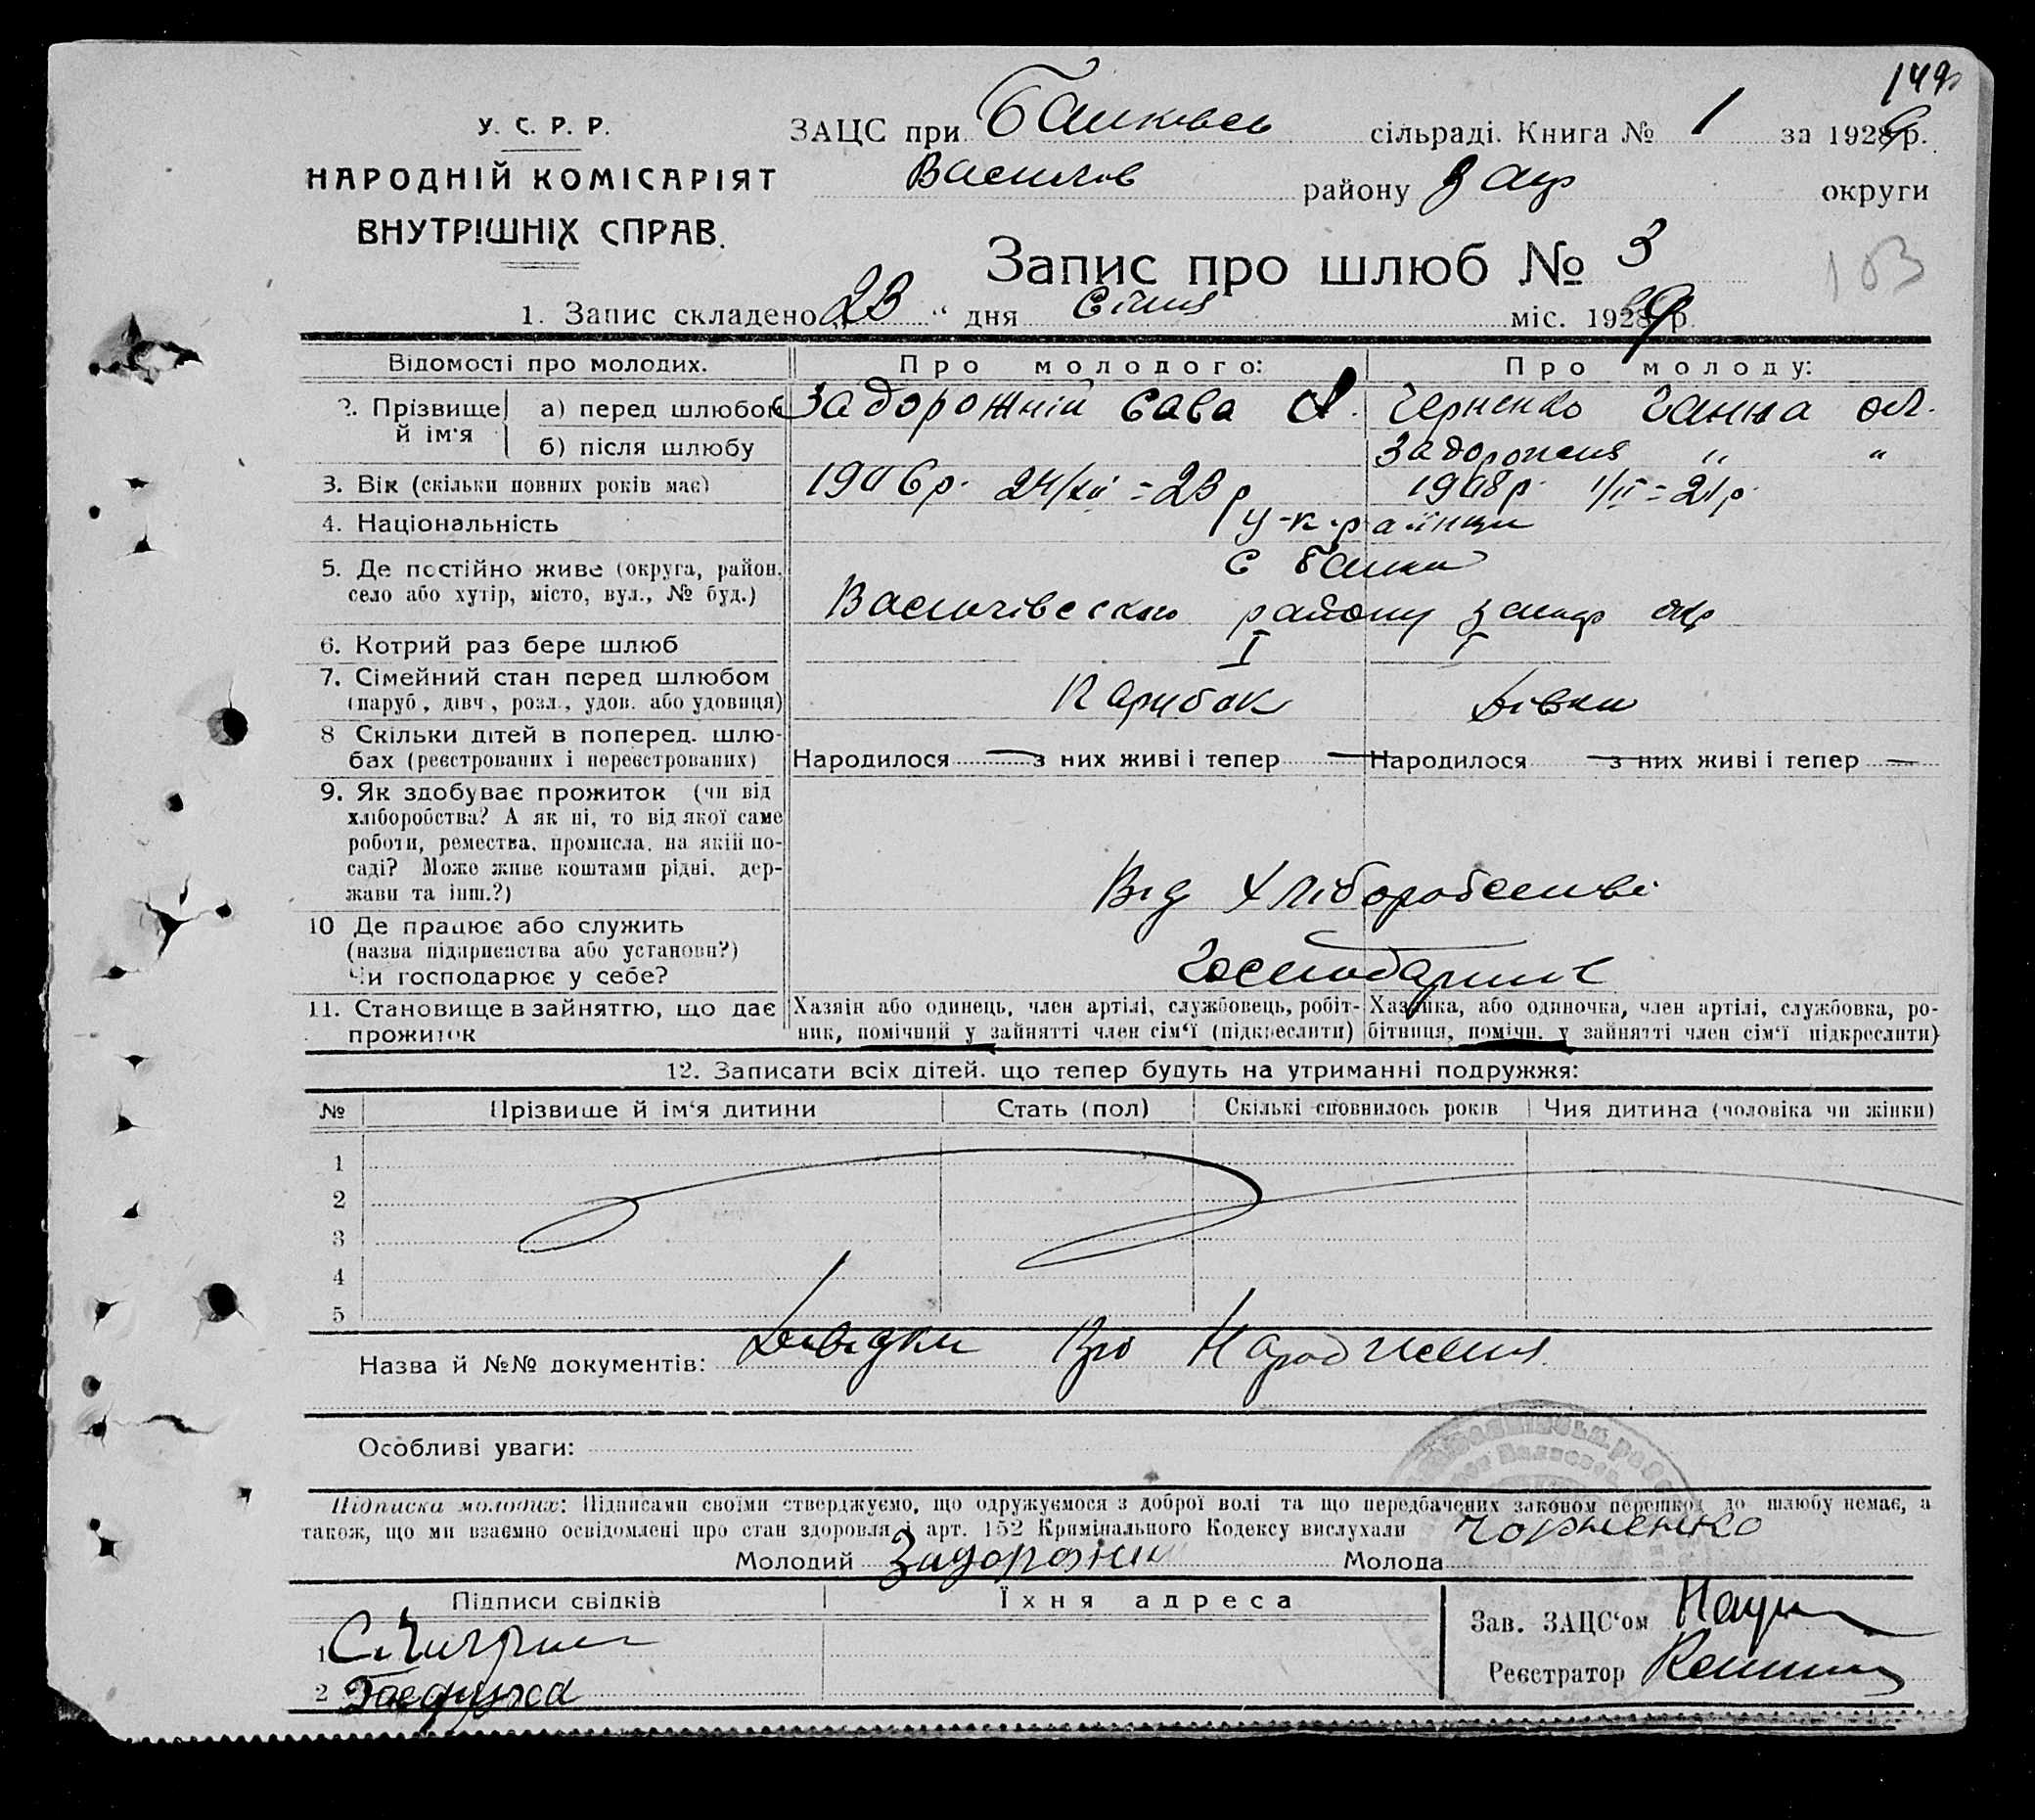 149
У. С. Р. Р.
НАРОДНІЙ КОМІСАРІЯТ
ВНУТРІШНІХ СПРАВ.
ЗАЦС при Балковск сільраді. Книга № 1 за 1929 р.
Василов району Зап округи
Запис про шлюб № 3
103
1. Запис складено „23“ дня Січня міс. 1929 р.
Відомості про молодих. Про молодого: Про молоду:
2. Прізвище й ім'я а) перед шлюбом Задорожній Сава Черненко Ганна
б) після шлюбу Задорожня „ „
3. Вік (скільки повних років має) 1906 р. 24/XII = 23 р 1908 р. 1/II = 21 р.
4. Національність у-країнци
5. Де постійно живе (округа, район, с Балки
село або хутір, місто, вул., № буд.) Васильівского району запор окр
6. Котрий раз бере шлюб I I
7. Сімейний стан перед шлюбом
(паруб., дівч., розл., удов. або удовиця) Парубок Дівка
8 Скільки дітей в поперед. шлю-
бах (реєстрованих і нереєстрованих) Народилося — з них живі і тепер — Народилося — з них живі і тепер —
9. Як здобуває прожиток (чи від
хліборобства? А як ні, то від якої саме
роботи, ремества, промисла, на якій по-
саді? Може живе коштами рідні, дер-
жави та інш.?) Від Хліборобства
10 Де працює або служить
(назва підприємства або установи?)
Чи господарює у себе?
11. Становище в зайняттю, що дає Хазяїн або одинець, член артілі, службовець, робіт- Хазяйка, або одиночка, член артілі, службовка, ро-
прожиток ник, помічний у зайнятті член сім'ї (підкреслити) бітниця, помічн. у зайнятті член сім'ї підкреслити)
12. Записати всіх дітей, що тепер будуть на утриманні подружжя:
№ Прізвище й ім'я дитини Стать (пол) Скількі сповнилось років Чия дитина (чоловіка чи жінки)
1
2
3
4
5
Назва й №№ документів: Довідки про Народження
Особливі уваги:
Підписка молодих: Підписами своїми стверджуємо, що одружуємося з доброї волі та що передбачених законом перешкод до шлюбу немає, а
також, що ми взаємно освідомлені про стан здоровля і арт. 152 Кримінального Кодексу вислухали
Молодий Задорожни Молода Чорненко
Підписи свідків Їхня адреса
Зав. ЗАЦС'ом
1
Реєстратор
2